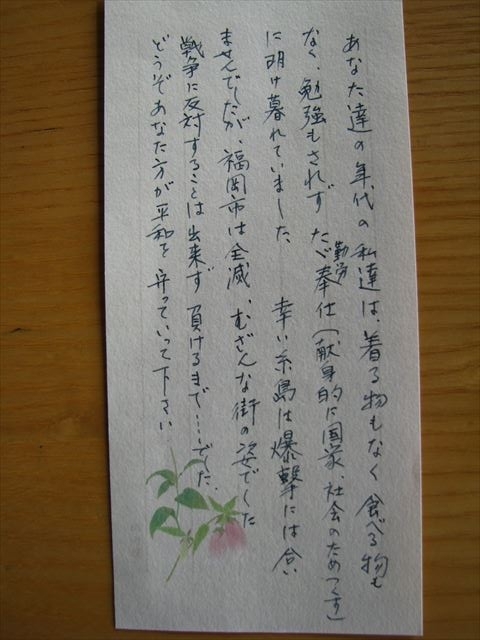 あなた達の年代の私達は、着る物もなく食べる物も
なく、勉強もされずたゞ勤労奉仕(献身的に国家、社会のためつくす)
に明け暮れていました、 幸い糸島は爆撃には合い
ませんでしたが、福岡市は全滅、むざんな街の姿でした
戦争に反対することは出来ず負けるまで…でした、
どうぞあなた方が平和を守っていって下さい